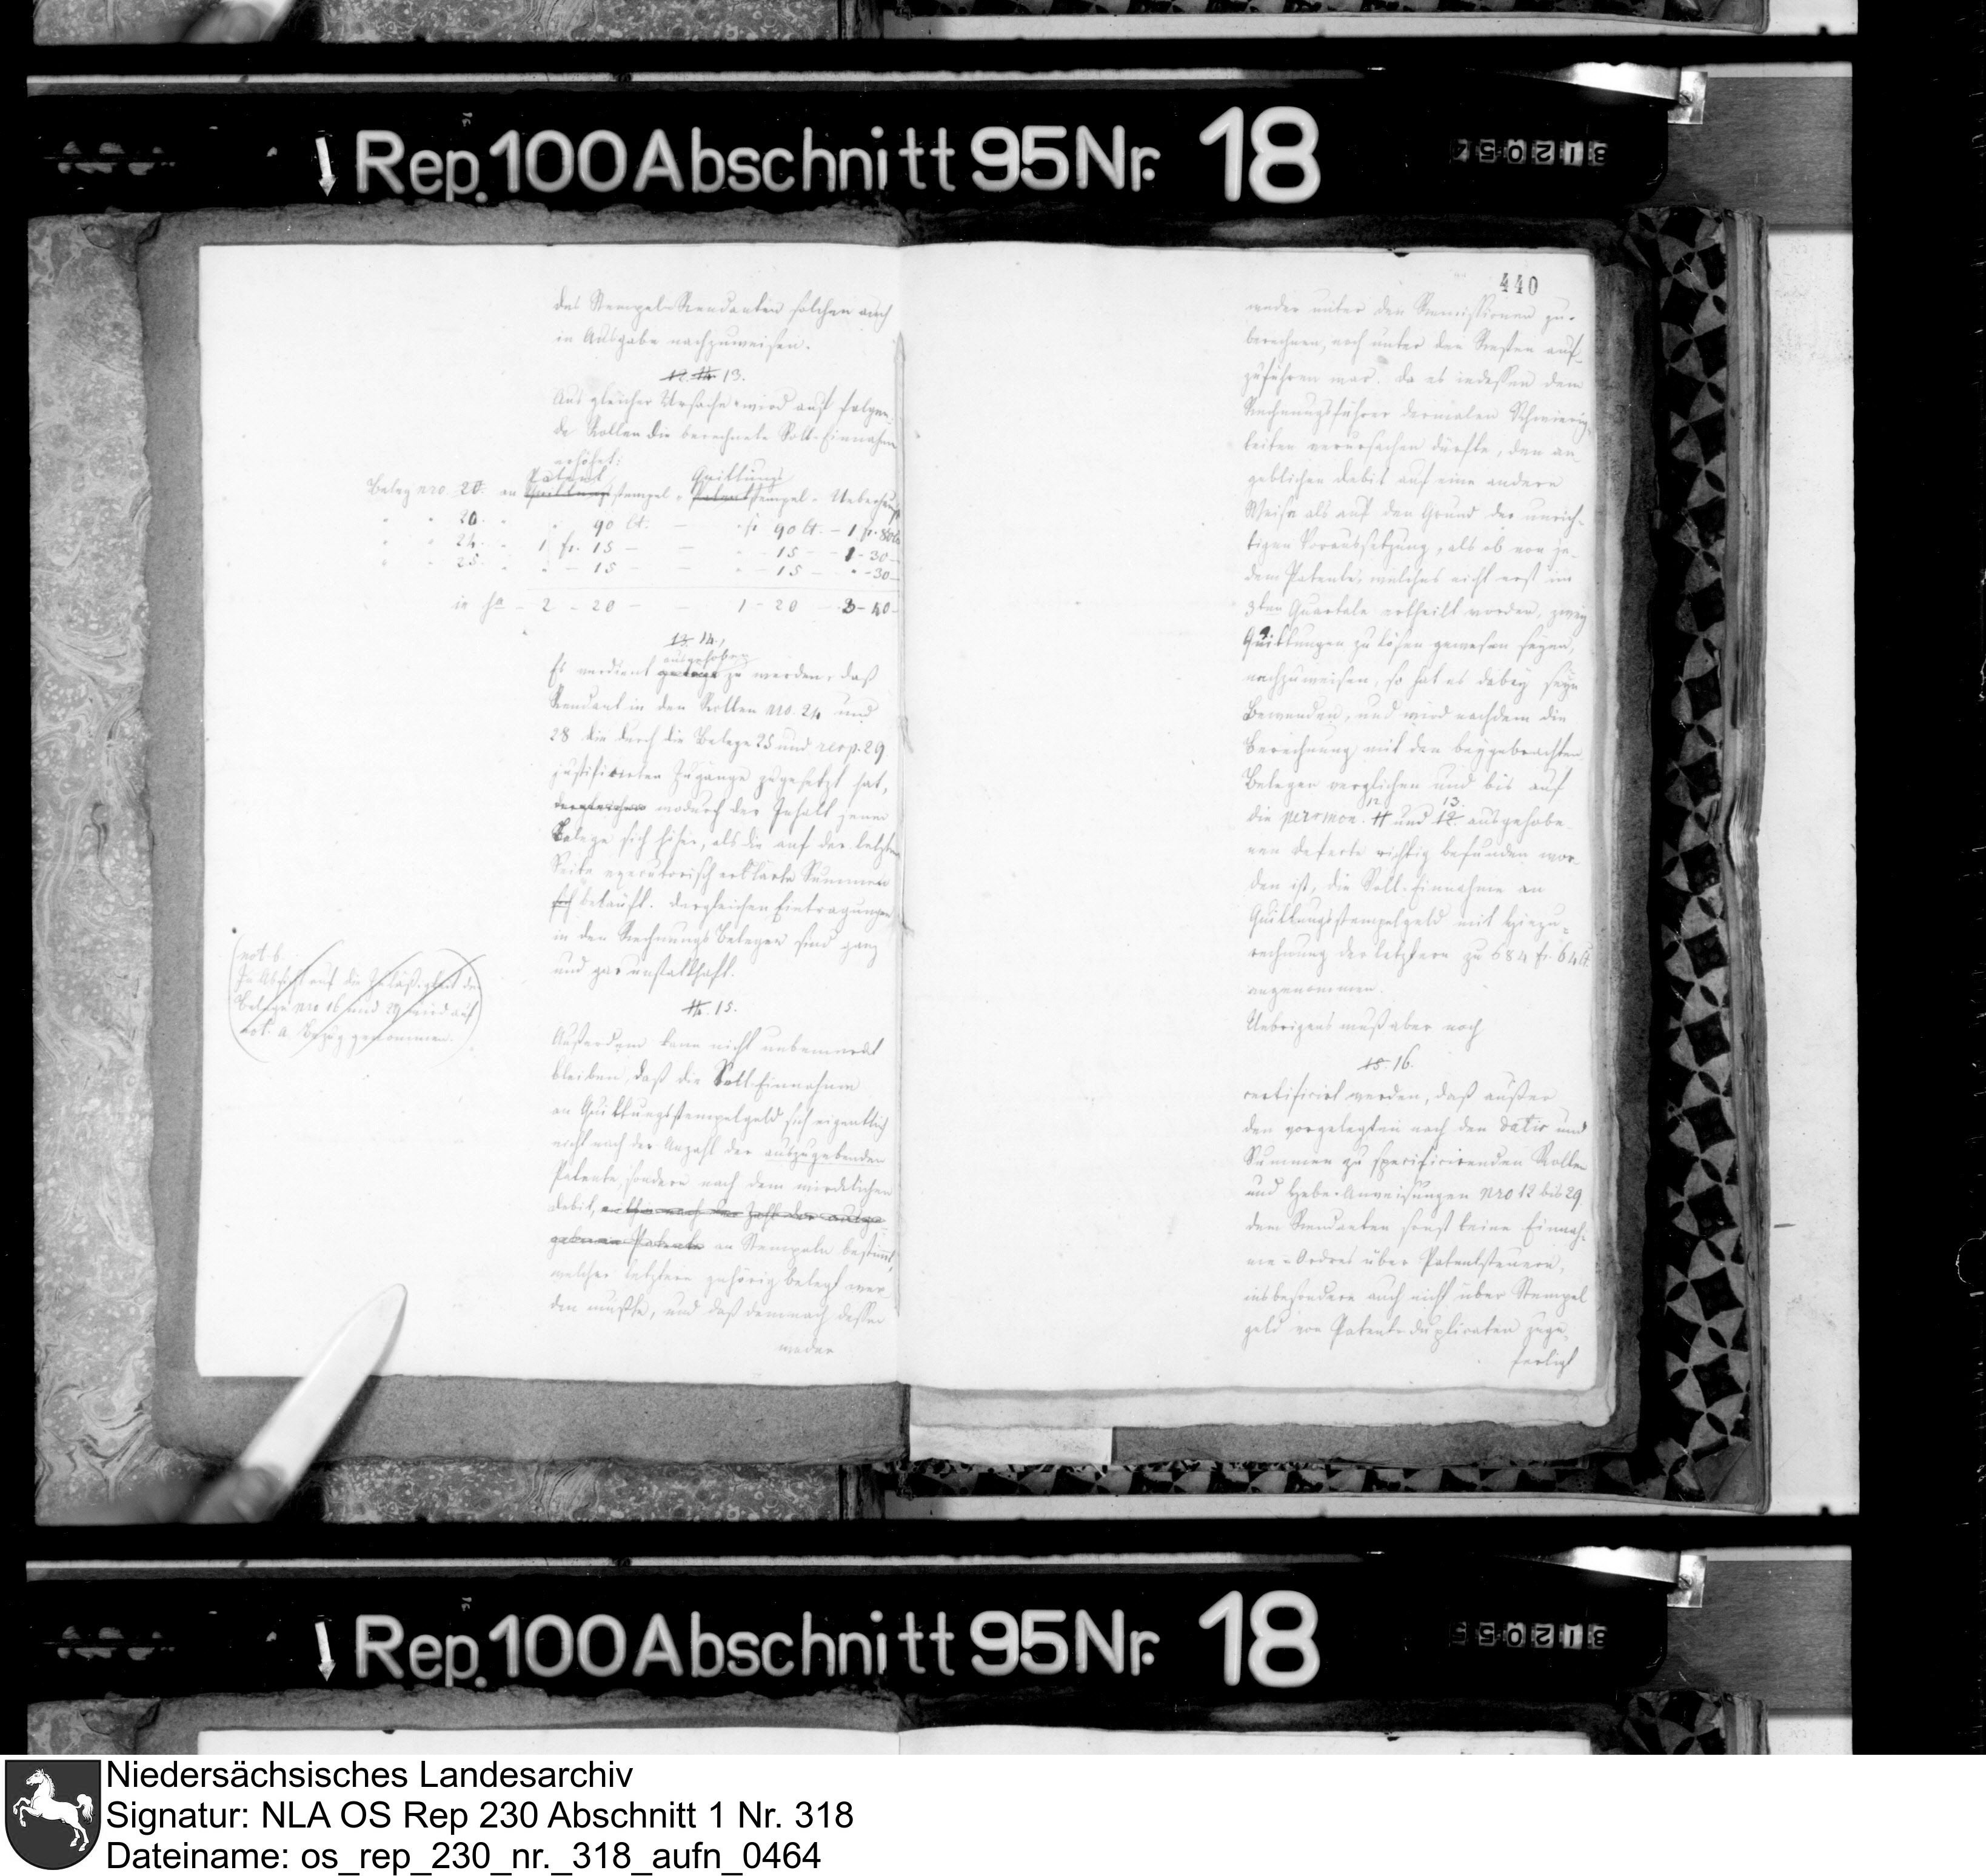 Rep. 100 Abschnitt 95 Nr. 18
312054
des Stempel-Rendanten solchen auch
in Ausgabe nachzuweisen.
12. 14. 13.
Aus gleicher Ursache wird auf folgen-
de Rollen die berechnete Soll-Einnahme
erhöhet:
Patent Quittungs
Beleg nro. 20. an Quittungsstempel - Patentstempel - Ueberhaupt
" " 20. " " 90 ct. — " fr 90 ct. — 1 fr. 80 ct
" " 24. " 1 fr. 15 — — " - 15 — 1 - 30 —
" " 25. " " - 15 — — " - 15 — " - 30 —
in Sa — 2 - 20 — — 1 - 20 — 3 - 40 —
13. 14.
ausgehoben
Es verdient zu werden, daß
Rendant in den Rollen nro. 24 und
28 die durch die Belege 25 und resp. 29
justificirten Zugänge zugesetzt hat,
dergleichen wodurch der Inhalt jener
Belege sich höher, als die auf der letzten
Seite executorisch erklärte Summen
sich beläuft. Dergleichen Eintragungen
in den Rechnungs Belegen sind ganz
und gar unstatthaft.
not. b.
In Absicht auf die Zuläßigkeit der
Belege nro 26 und 29 wird auf
not. a Bezug genommen.
14. 15.
Außerdem kann nicht unbemerkt
bleiben, daß die Soll-Einnahme
an Quittungsstempelgeld sich eigentlich
nicht nach der Anzahl der auszugebenden
Patente, sondern nach dem wirklichen
Debit, nach der Zahl der ausge-
gebenen Patente an Stempeln bestimmt,
welcher letztere gehörig belegt wer-
den mußte, und daß demnach dessen
weder
440
weder unter den Remissionen zu-
berechnen, noch unter den Resten auf-
zuführen war. Da es indessen dem
Rechnungsführer dermalen Schwierig-
keiten verursachen dürfte, den an-
geblichen Debit auf eine andere
Weise als auf den Grund der unrich-
tigen Voraussetzung, als ob von je-
dem Patente, welches nicht erst im
3ten Quartale ertheilt worden, zwey
Quittungen zu lösen gewesen seyen,
nachzuweisen, so hat es dabey sein
Bewenden, und wird nachdem die
Berechnung mit den beygebrachten
Belegen verglichen und bis auf
12. 13.
die per mon. 11 und 12. ausgehobe-
nen Defecte richtig befunden wor-
den ist, die Soll-Einnahme an
Quittungsstempelgeld mit Hinzu-
rechnung der letztern zu 684 fr. 64 ct.
angenommen.
Uebrigens muß aber noch
15. 16.
certificirt werden, daß außer
den vorgelegten nach den Datis und
Summen zu specificirenden Rollen
und Hebe-Anweisungen nro 12 bis 29
dem Rendanten sonst keine Einnah-
me-Ordres über Patentsteuern,
insbesondere auch nicht über Stempel
geld von Patent-duplicaten zuge-
fertigt
Rep. 100 Abschnitt 95 Nr. 18
312055
Niedersächsisches Landesarchiv
Signatur: NLA OS Rep 230 Abschnitt 1 Nr. 318
Dateiname: os_rep_230_nr._318_aufn_0464